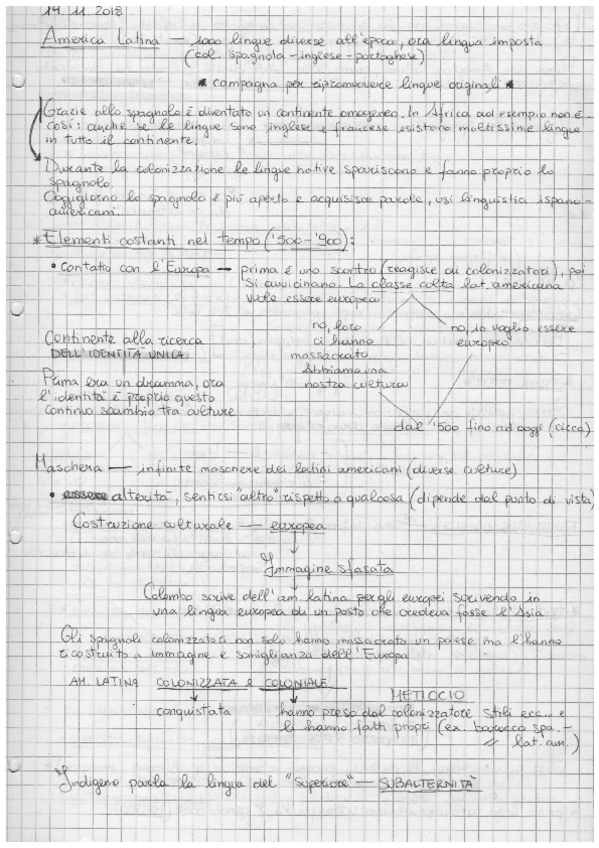 19 11 2018
America Latina — 1000 lingue diverse all'epoca, ora lingua imposta
(col. spagnola-inglese-portoghese)
* campagna per ripromuovere lingue originali *
Grazie allo spagnolo è diventato un continente omogeneo. In Africa ad esempio non è
così: anche se le lingue sono inglese e francese esistono moltissime lingue
in tutto il continente.
Durante la colonizzazione le lingue native spariscono e fanno proprio lo
spagnolo.
Oggigiorno lo spagnolo è più aperto e acquisisce parole, usi linguistici ispano-
americani.
* Elementi costanti nel tempo ('500-'900):
• contatto con l'Europa — prima è uno scontro (reagisce ai colonizzatori), poi
si avvicinano. La classe colta lat. americana
vuole essere europea
no, loro
ci hanno
massacrato
Abbiamo una
nostra cultura
no, io voglio essere
europeo
Continente alla ricerca
DELL'IDENTITÀ UNICA
Prima era un dramma, ora
l'identità è proprio questo
continuo scambio tra culture
dal '500 fino ad oggi (circa)
Maschera — infinite maschere dei latini americani (diverse culture)
• essere alterità, sentirsi "altro" rispetto a qualcosa (dipende dal punto di vista)
Costruzione culturale — europea
Immagine sfasata
Colombo scrive dell'am latina per gli europei scrivendo in
una lingua europea di un posto che credeva fosse l'Asia
Gli spagnoli colonizzatori non solo hanno massacrato un paese ma l'hanno
ricostruito a immagine e somiglianza dell'Europa
AM. LATINA COLONIZZATA e COLONIALE
METICCIO
conquistata
hanno preso dal colonizzatore stili ecc.. e
li hanno fatti propri (ex. barocco spa. -
" lat. am.)
Indigeno parla la lingua del "superiore" — SUBALTERNITÀ